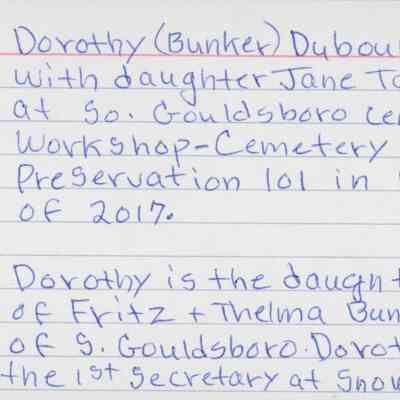 Dorothy (Bunker) Dubou
with daughter Jane To
at So. Gouldsboro Ce
Workshop-Cemetery
Preservation 101 in
of 2017.
Dorothy is the daught
of Fritz + Thelma Bun
of S. Gouldsboro. Dorot
the 1st Secretary at Snow